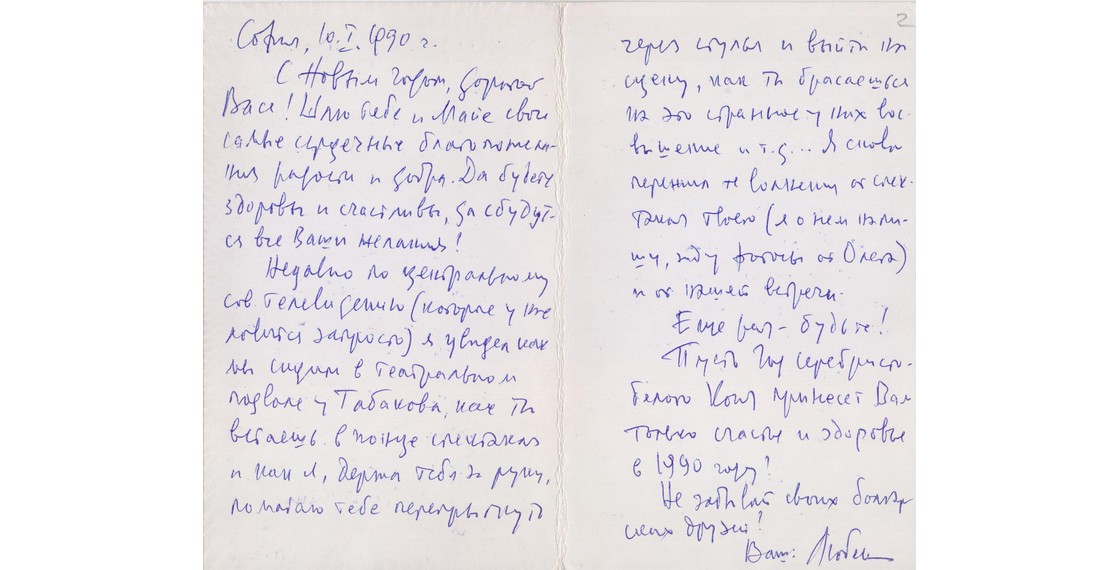 София, 10.I.1990 г.
С Новым годом, дорогой
Вася! Шлю тебе и Майе свои
самые сердечные благопожела-
ния радости и добра. Да будете
здоровы и счастливы, да сбудут-
ся все Ваши желания!
Недавно по центральному
сов. телевидению (которое у нас
ловится запросто) я увидел как
мы сидим в театральном
подвале у Табакова, как ты
встаешь в конце спектакля
и как я, держа тебя за руку,
помогаю тебе перепрыгнуть
2
через стулья и выйти на
сцену, как ты бросаешься
на это странное у них воз-
вышение и т.д... Я снова
пережил те волнения от спек-
такля твоего (я о нем напи-
шу, жду фотосы от Олега)
и от нашей встречи.
Еще раз - будьте!
Пусть Год серебристо-
белого Коня принесет Вам
только счастье и здоровье
в 1990 году!
Не забывай своих болгар-
ских друзей!
Ваш: Любен